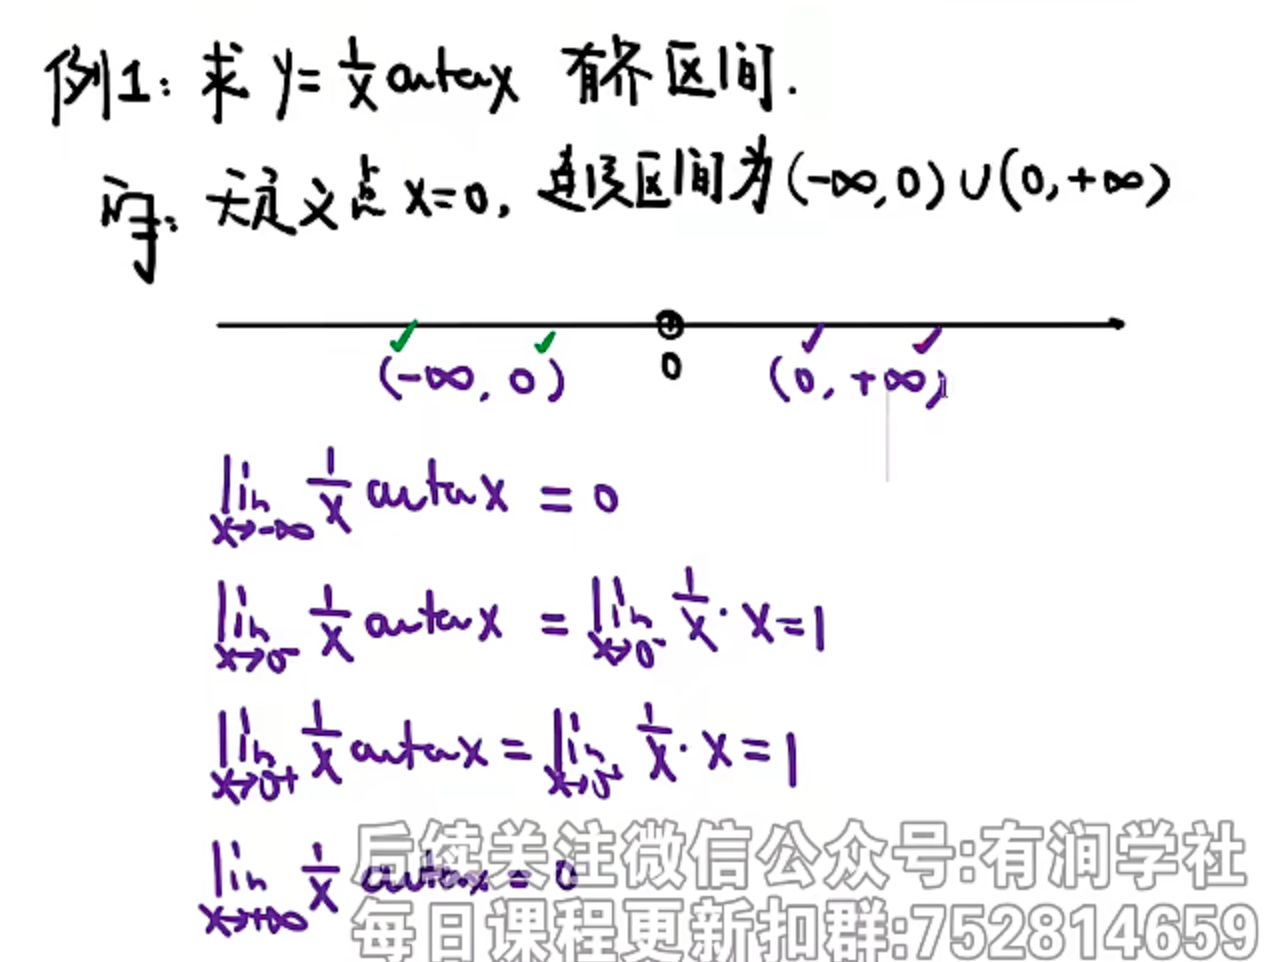 例1: 求 y = 1/x arctan x 有界区间.
解: 无定义点 x=0, 连续区间为 (-∞,0) ∪ (0,+∞)
0
(-∞, 0) (0, +∞)
lim x→-∞ 1/x arctan x = 0
lim x→0⁻ 1/x arctan x = lim x→0⁻ 1/x · x = 1
lim x→0⁺ 1/x arctan x = lim x→0⁺ 1/x · x = 1
lim x→+∞ 1/x arctan x = 0
后续关注微信公众号:有润学社
每日课程更新扣群:752814659